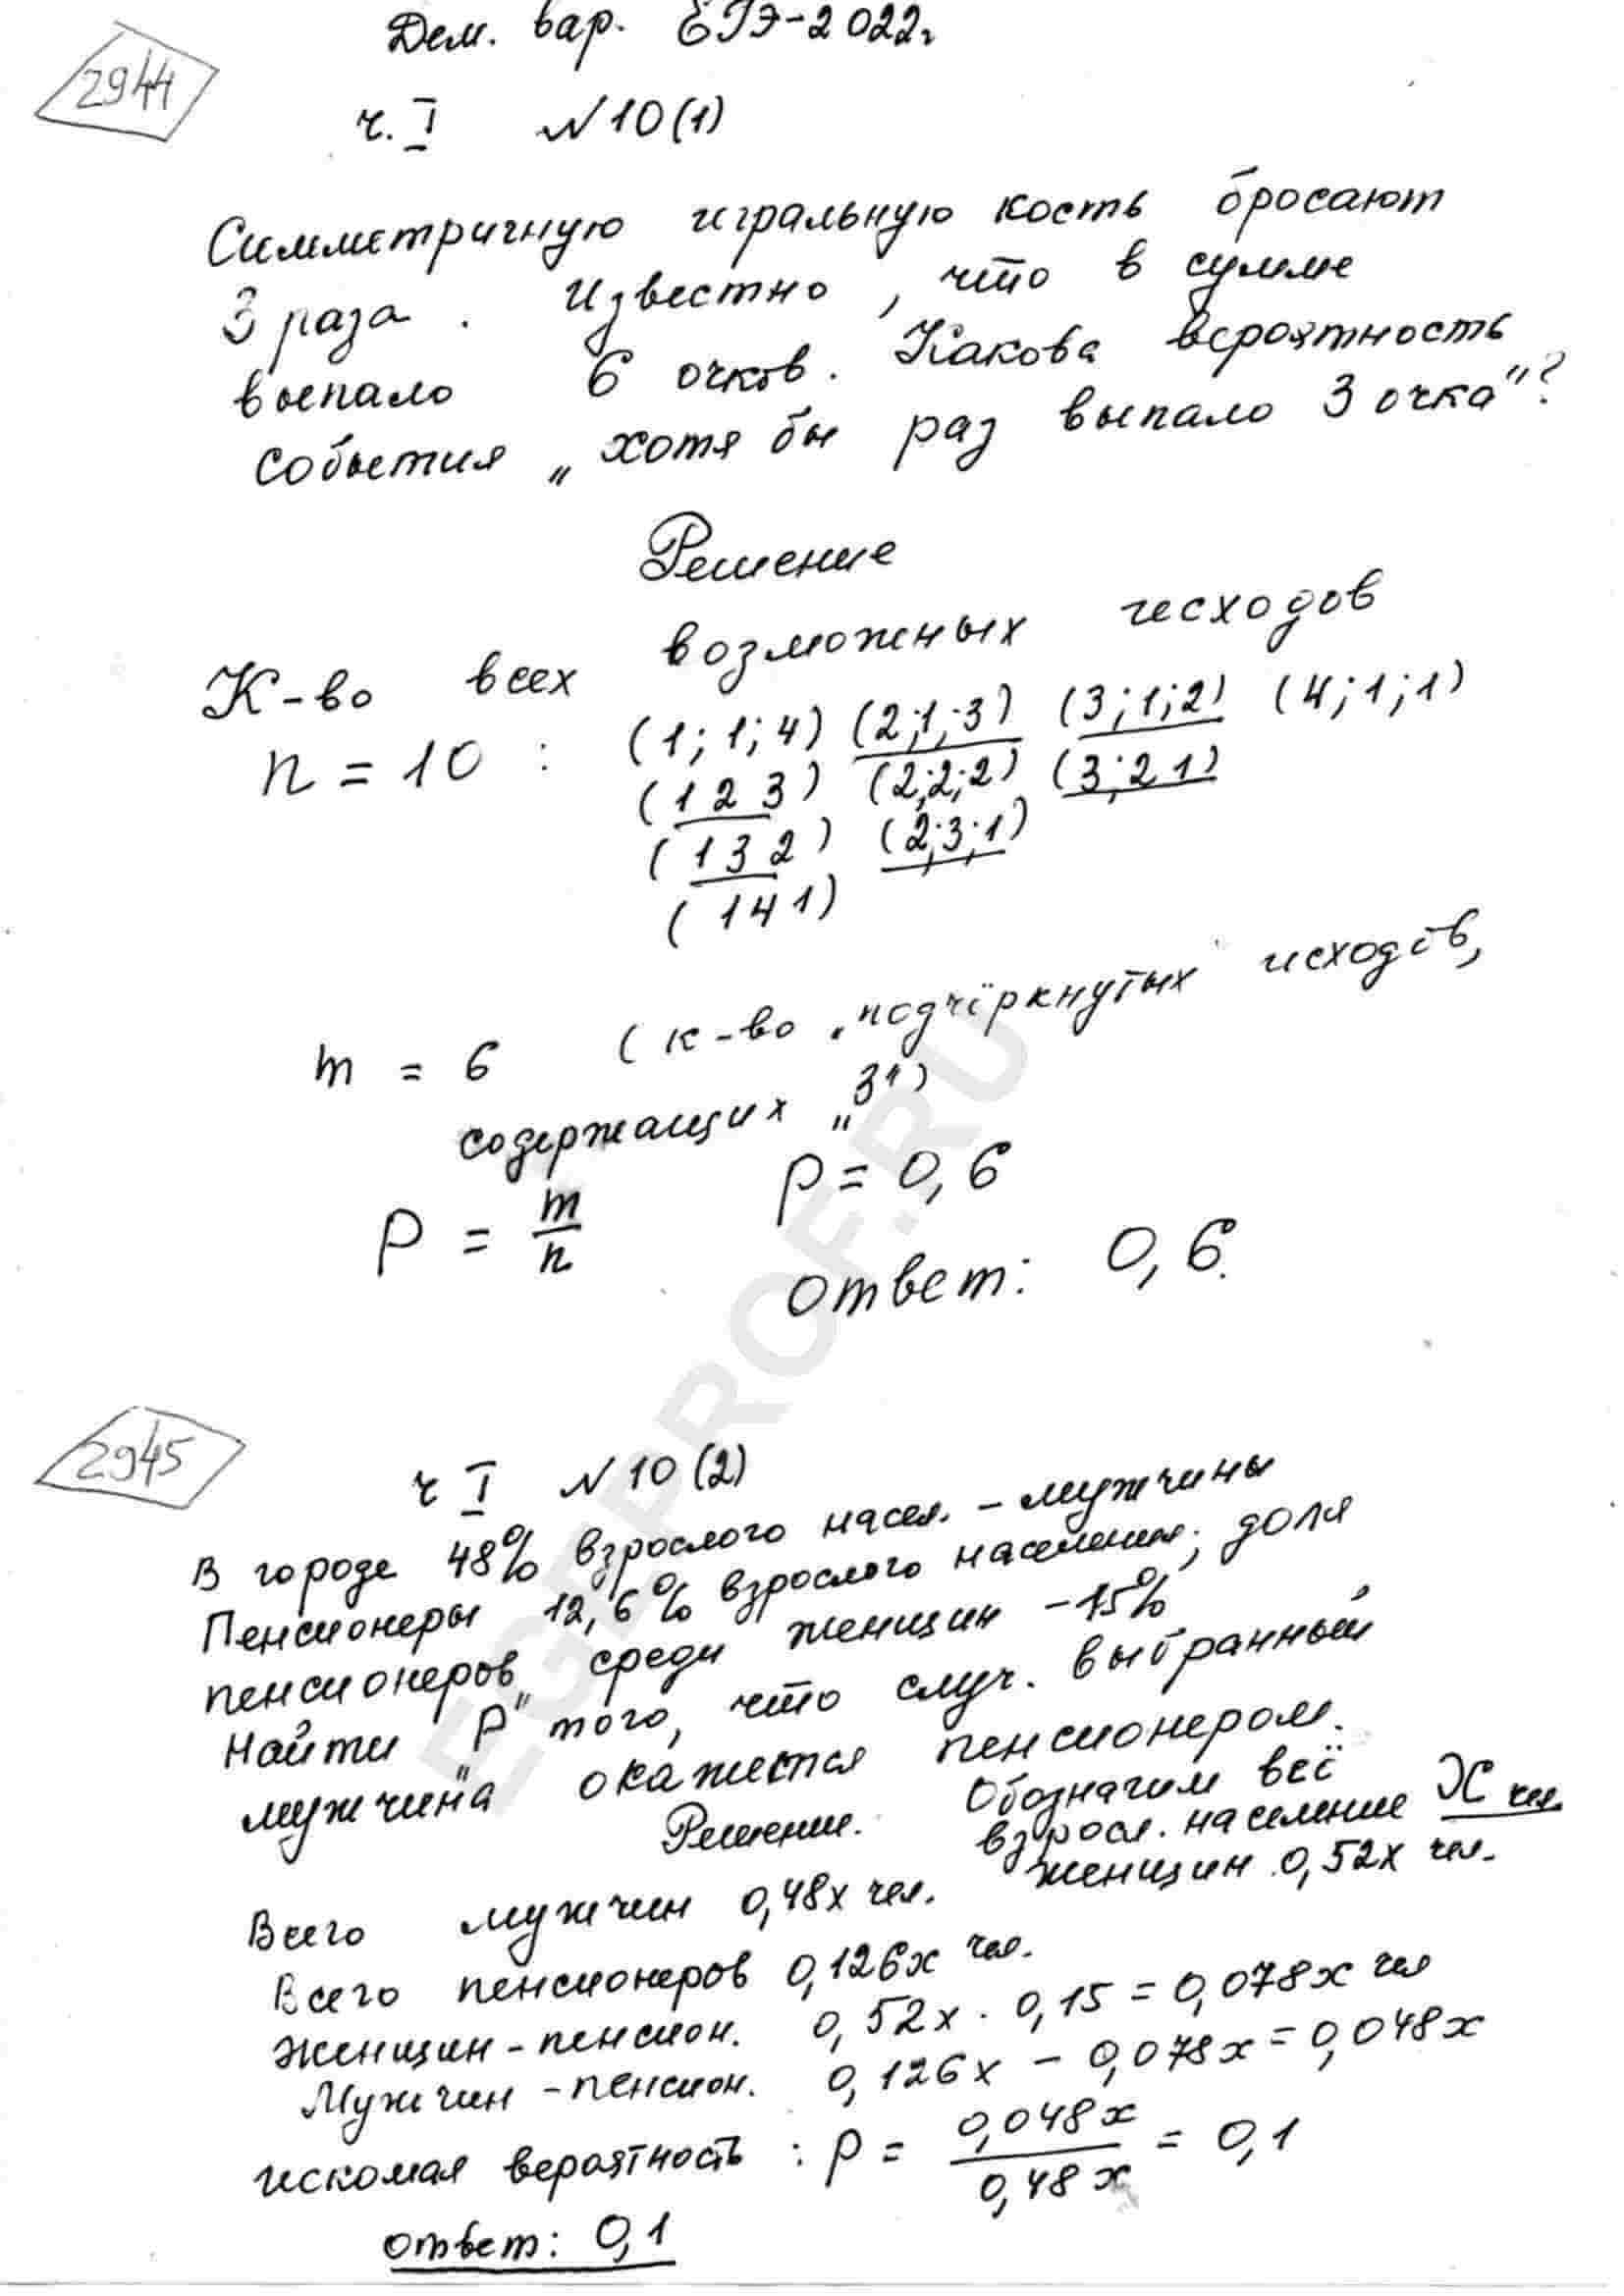 Дем. вар. ЕГЭ-2022г
2944
ч. I №10(1)
Симметричную игральную кость бросают
3 раза. Известно, что в сумме
выпало 6 очков. Какова вероятность
события „хотя бы раз выпало 3 очка"?
Решение
К-во всех возможных исходов
n = 10 : (1; 1; 4) (2;1;3) (3;1;2) (4;1;1)
(1 2 3) (2;2;2) (3;2 1)
(1 3 2) (2;3;1)
(1 4 1)
m = 6 (к-во „подчёркнутых" исходов,
содержащих „3")
P = m/n p = 0,6
Ответ: 0,6.
2945
ч I №10(2)
В городе 48% взрослого насел. – мужчины
Пенсионеры 12,6% взрослого населения; доля
пенсионеров среди женщин – 15%
Найти „P" того, что случ. выбранный
мужчина окажется пенсионером.
Решение. Обозначим всё
взросл. население X чел.
Всего мужчин 0,48x чел. женщин 0,52x чел.
Всего пенсионеров 0,126x чел.
Женщин-пенсион. 0,52x · 0,15 = 0,078x чел
Мужчин-пенсион. 0,126x – 0,078x = 0,048x
искомая вероятность : P = 0,048x/0,48x = 0,1
ответ: 0,1
EGEPROF.RU